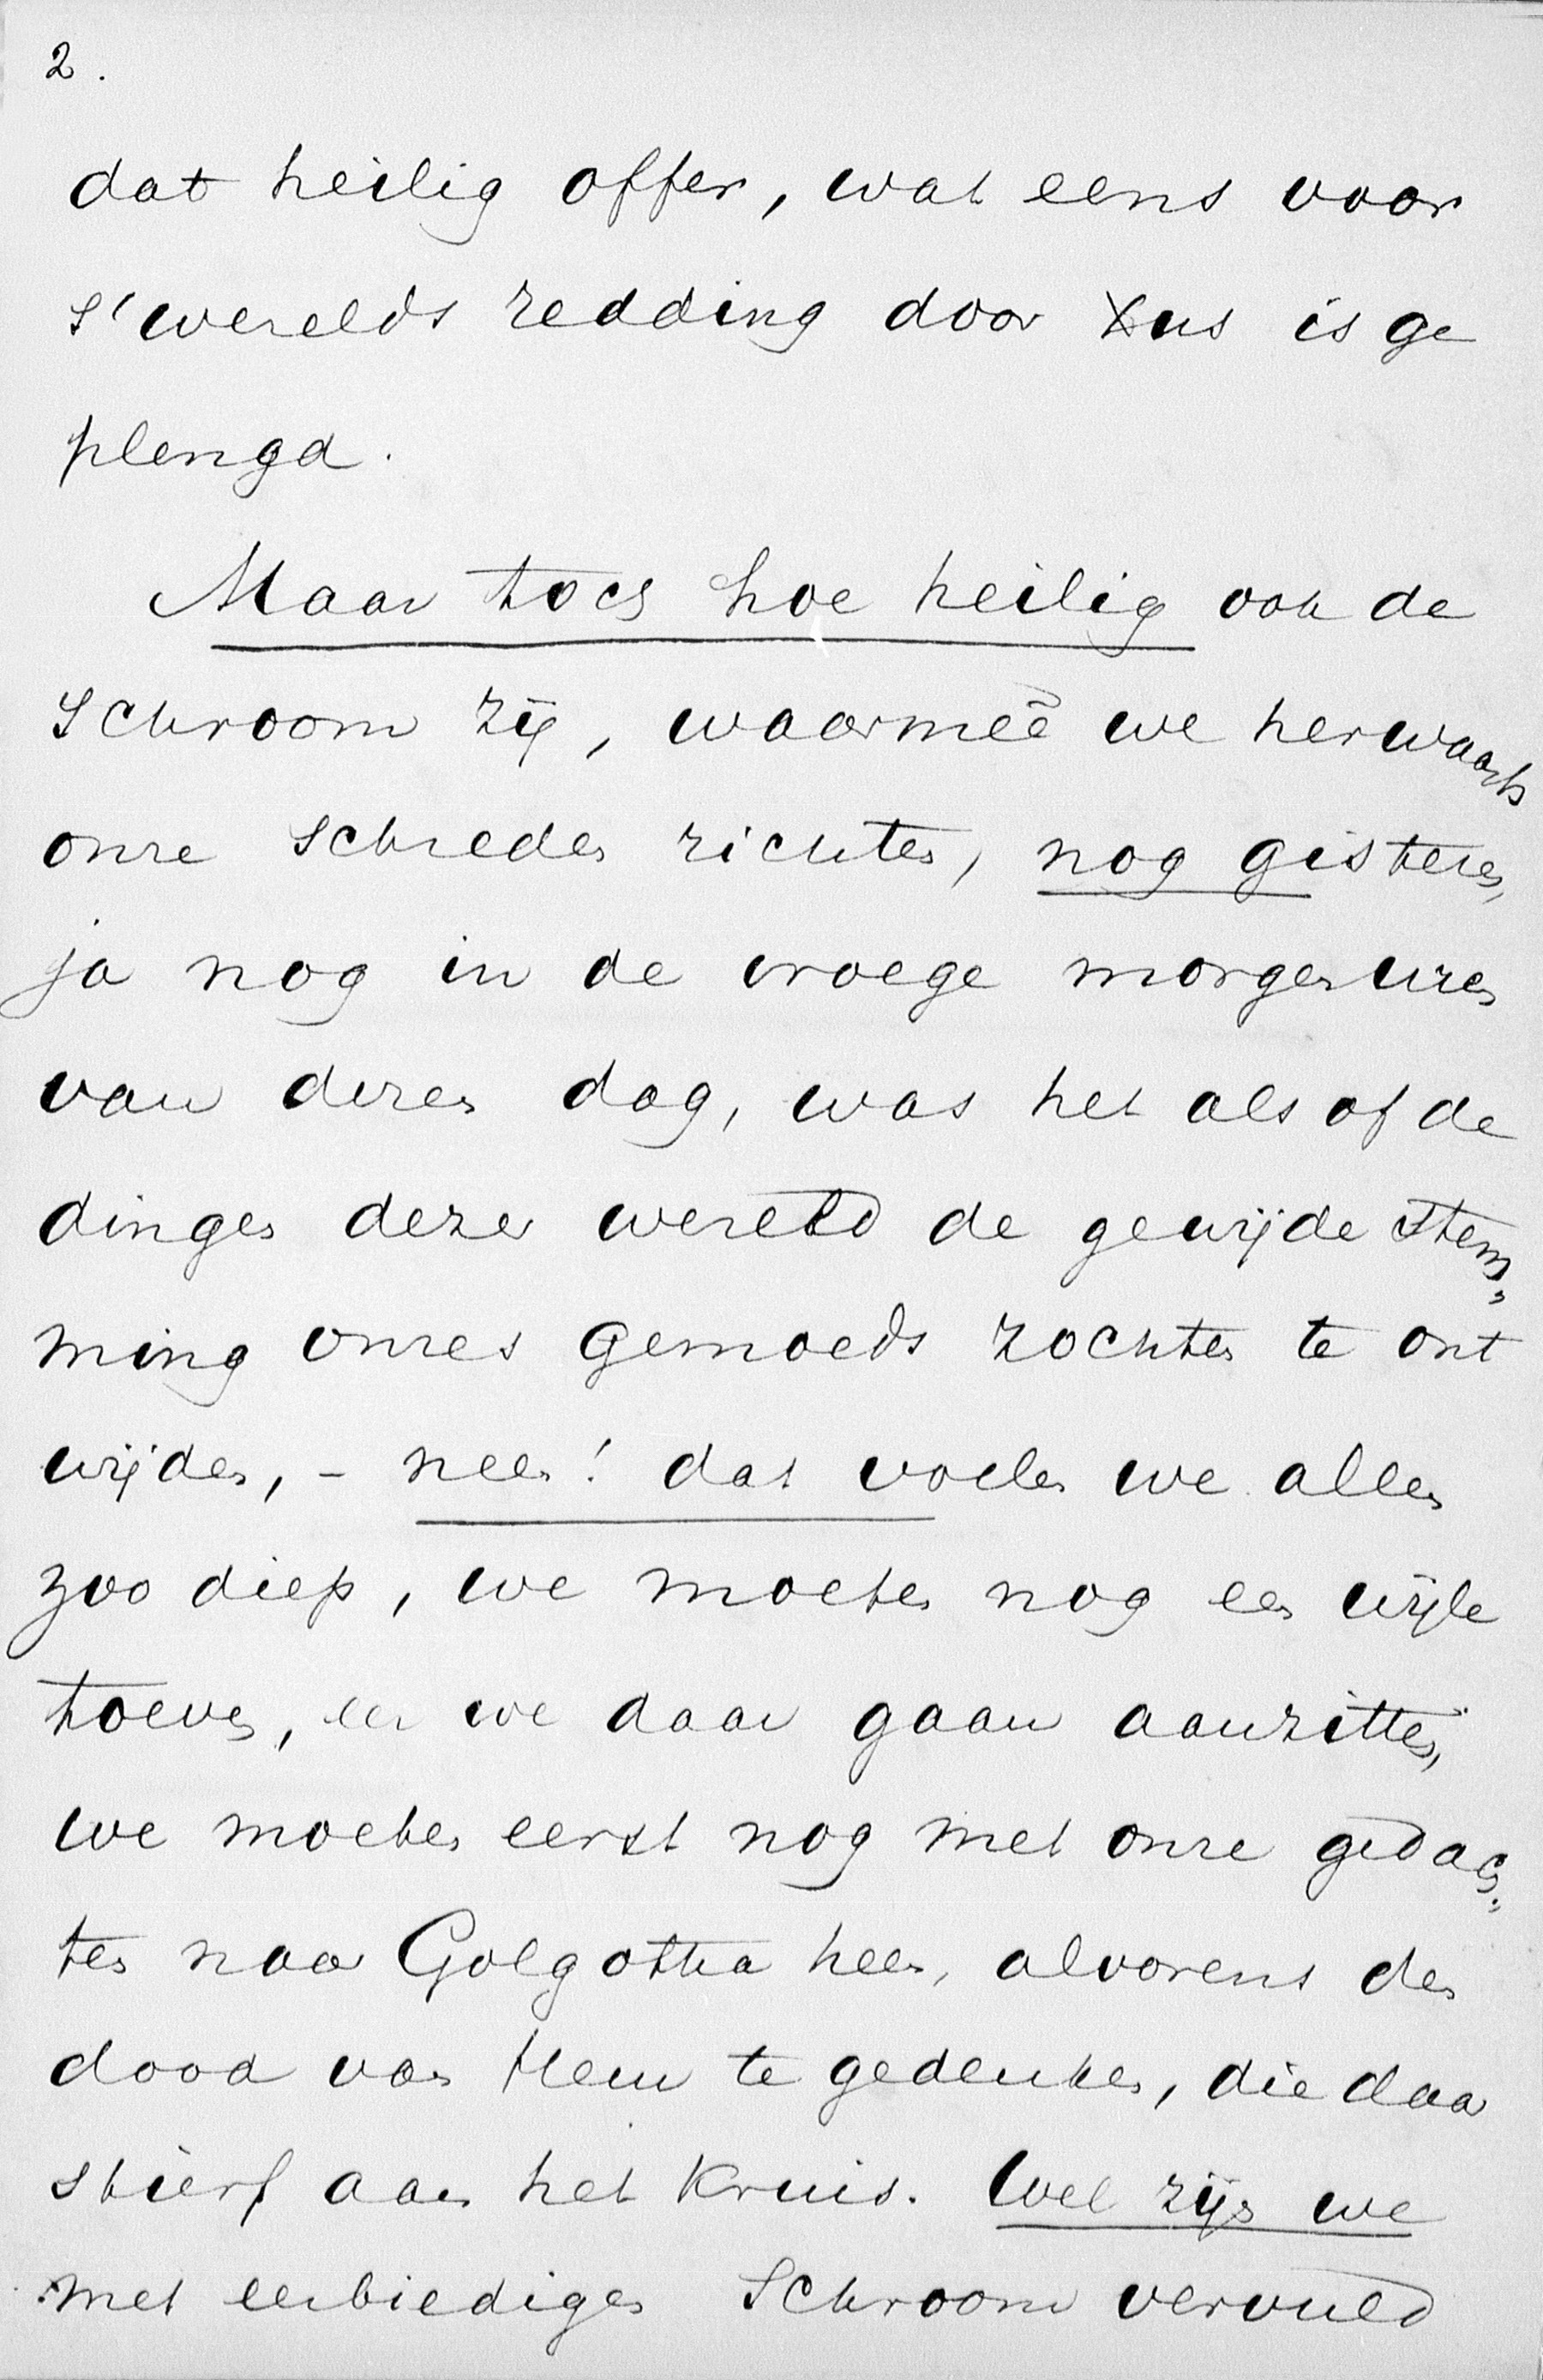 2.
dat heilig offer, wat eens voor
s' werelds redding door Xus is ge
plengd.
Maar toch hoe heilig ook de
schroom zij, waarmeê we herwaarts
onze schreden richten, nog gisteren,
ja nog in de vroege morgenuren
van dezen dag, was het alsof de
dingen dezer wereld de gewijde stem„
ming onzes gemoeds zochten te ont
wijden, – neen! dat voelen we allen
zoo diep, we moeten nog een wijle
toeven, eer we daar gaan aanzitten,
we moeten eerst nog met onze gedach„
ten naar Golgotha heen, alvorens den
dood van Hem te gedenken, die daar
stierf aan het kruis. Wel zijn we
met eerbiedigen schroom vervuld